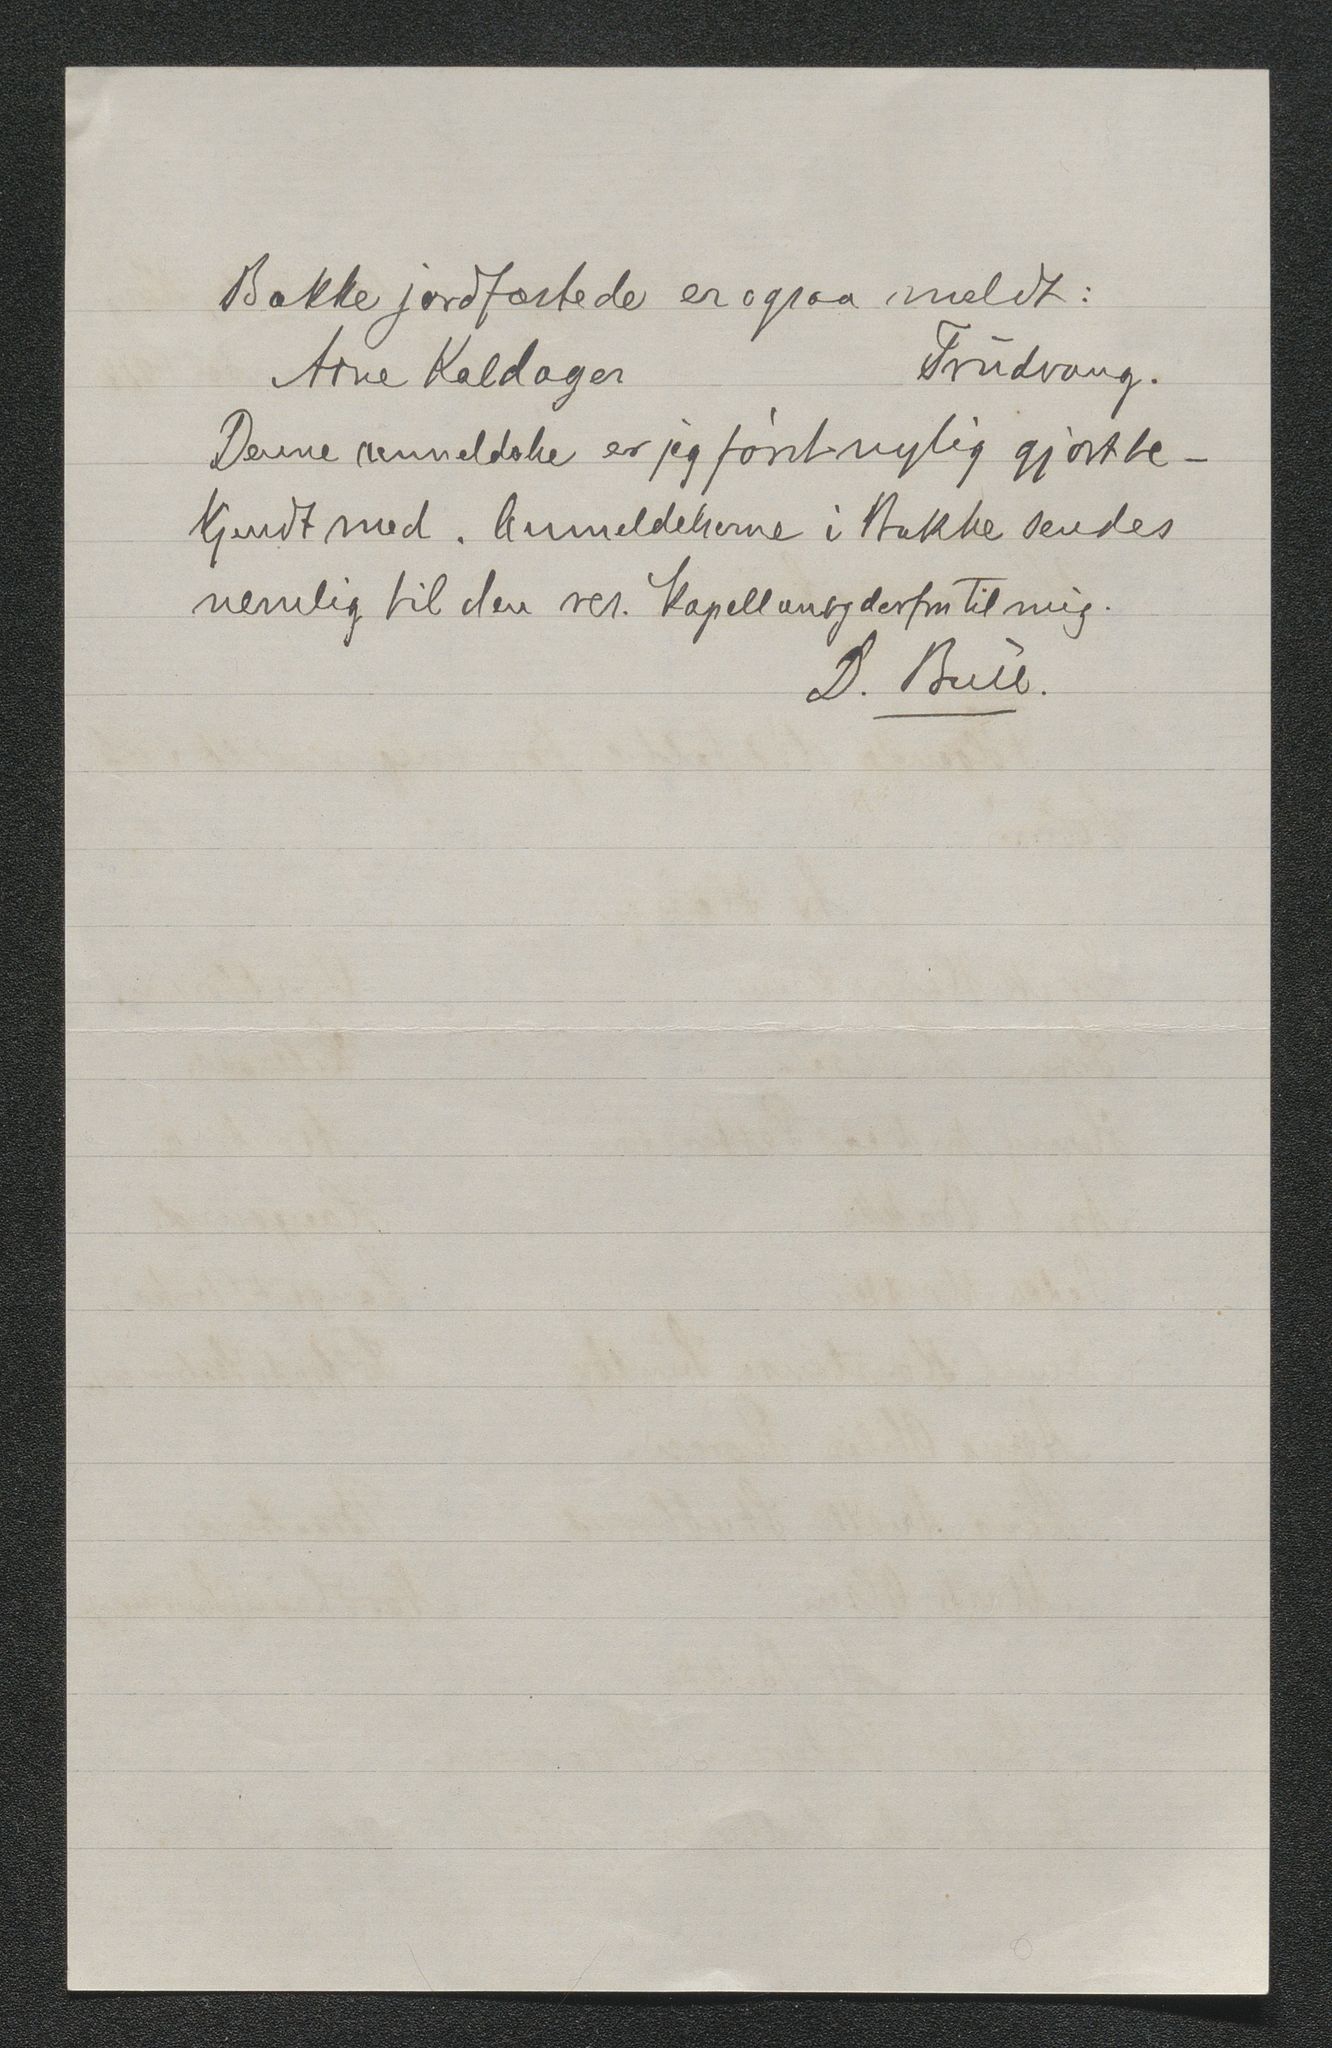 Bakke jordfæstede er ogsaa meldt:
Arne Kaldager Trudvang.
Denne anmeldelse er jeg først nylig gjort be-
kjendt med. Anmeldelserne i Bakke sendes
nemlig til den res. kapellan og derfra til mig.
D. Bull.